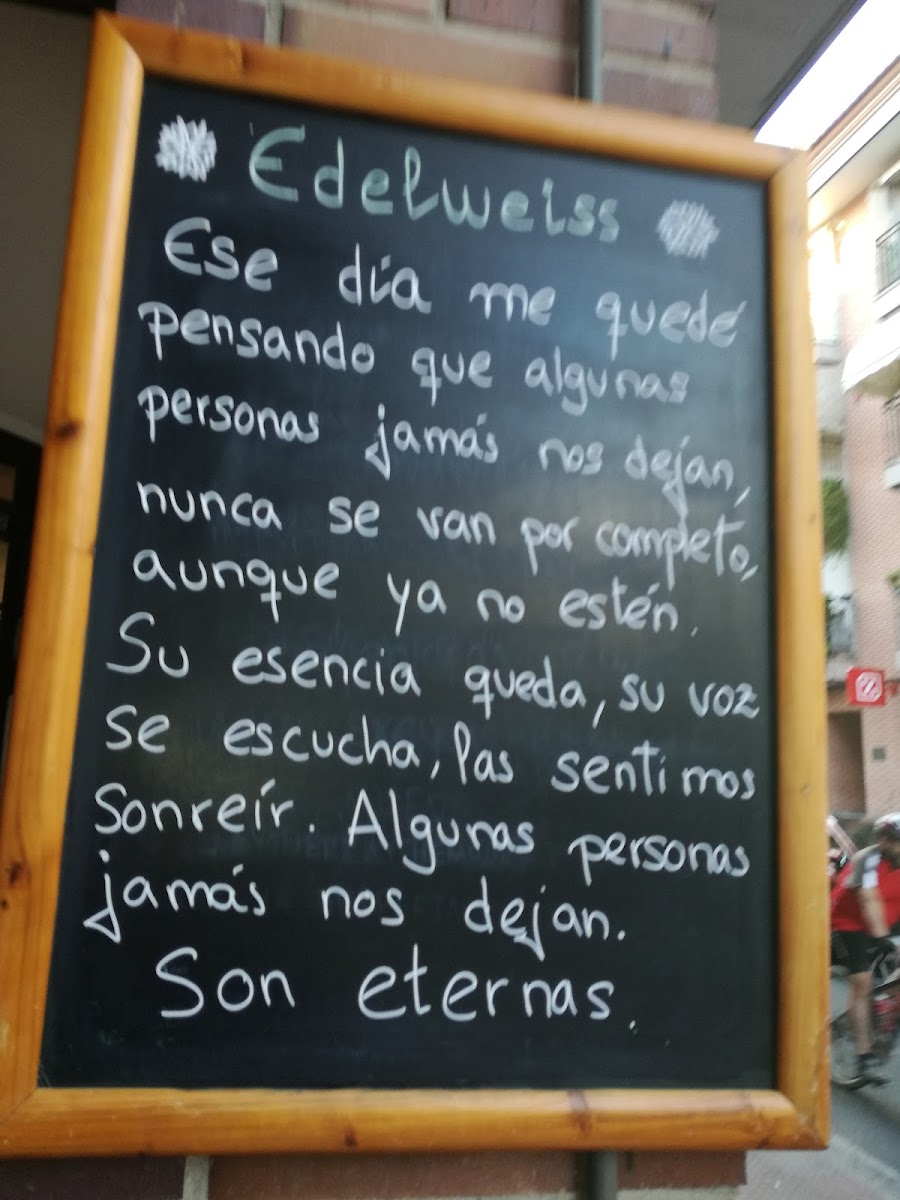 Edelweiss
Ese día me quedé
pensando que algunas
personas jamás nos dejan,
nunca se van por completo,
aunque ya no estén.
Su esencia queda, su voz
se escucha, las sentimos
sonreír. Algunas personas
jamás nos dejan.
Son eternas.